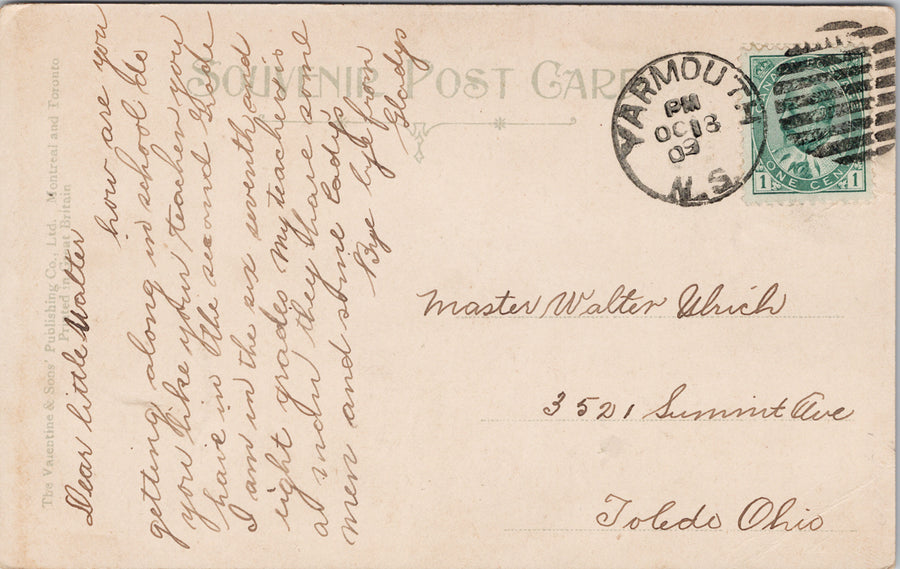 SOUVENIR POST CARD
The Valentine & Sons' Publishing Co., Ltd. Montreal and Toronto
Printed in Great Britain
Dear little Walter
how are you
getting along in school do
you like your teacher you
have in the second Grade
I am in the six seventh and
eight grades My teachers
in they have some
men and some lady
Bye bye from
Gladys
YARMOUTH
PM
OC 18
09
N.S.
CANADA
1 ONE CENT 1
Master Walter Ulrich
3521 Summit Ave
Toledo Ohio